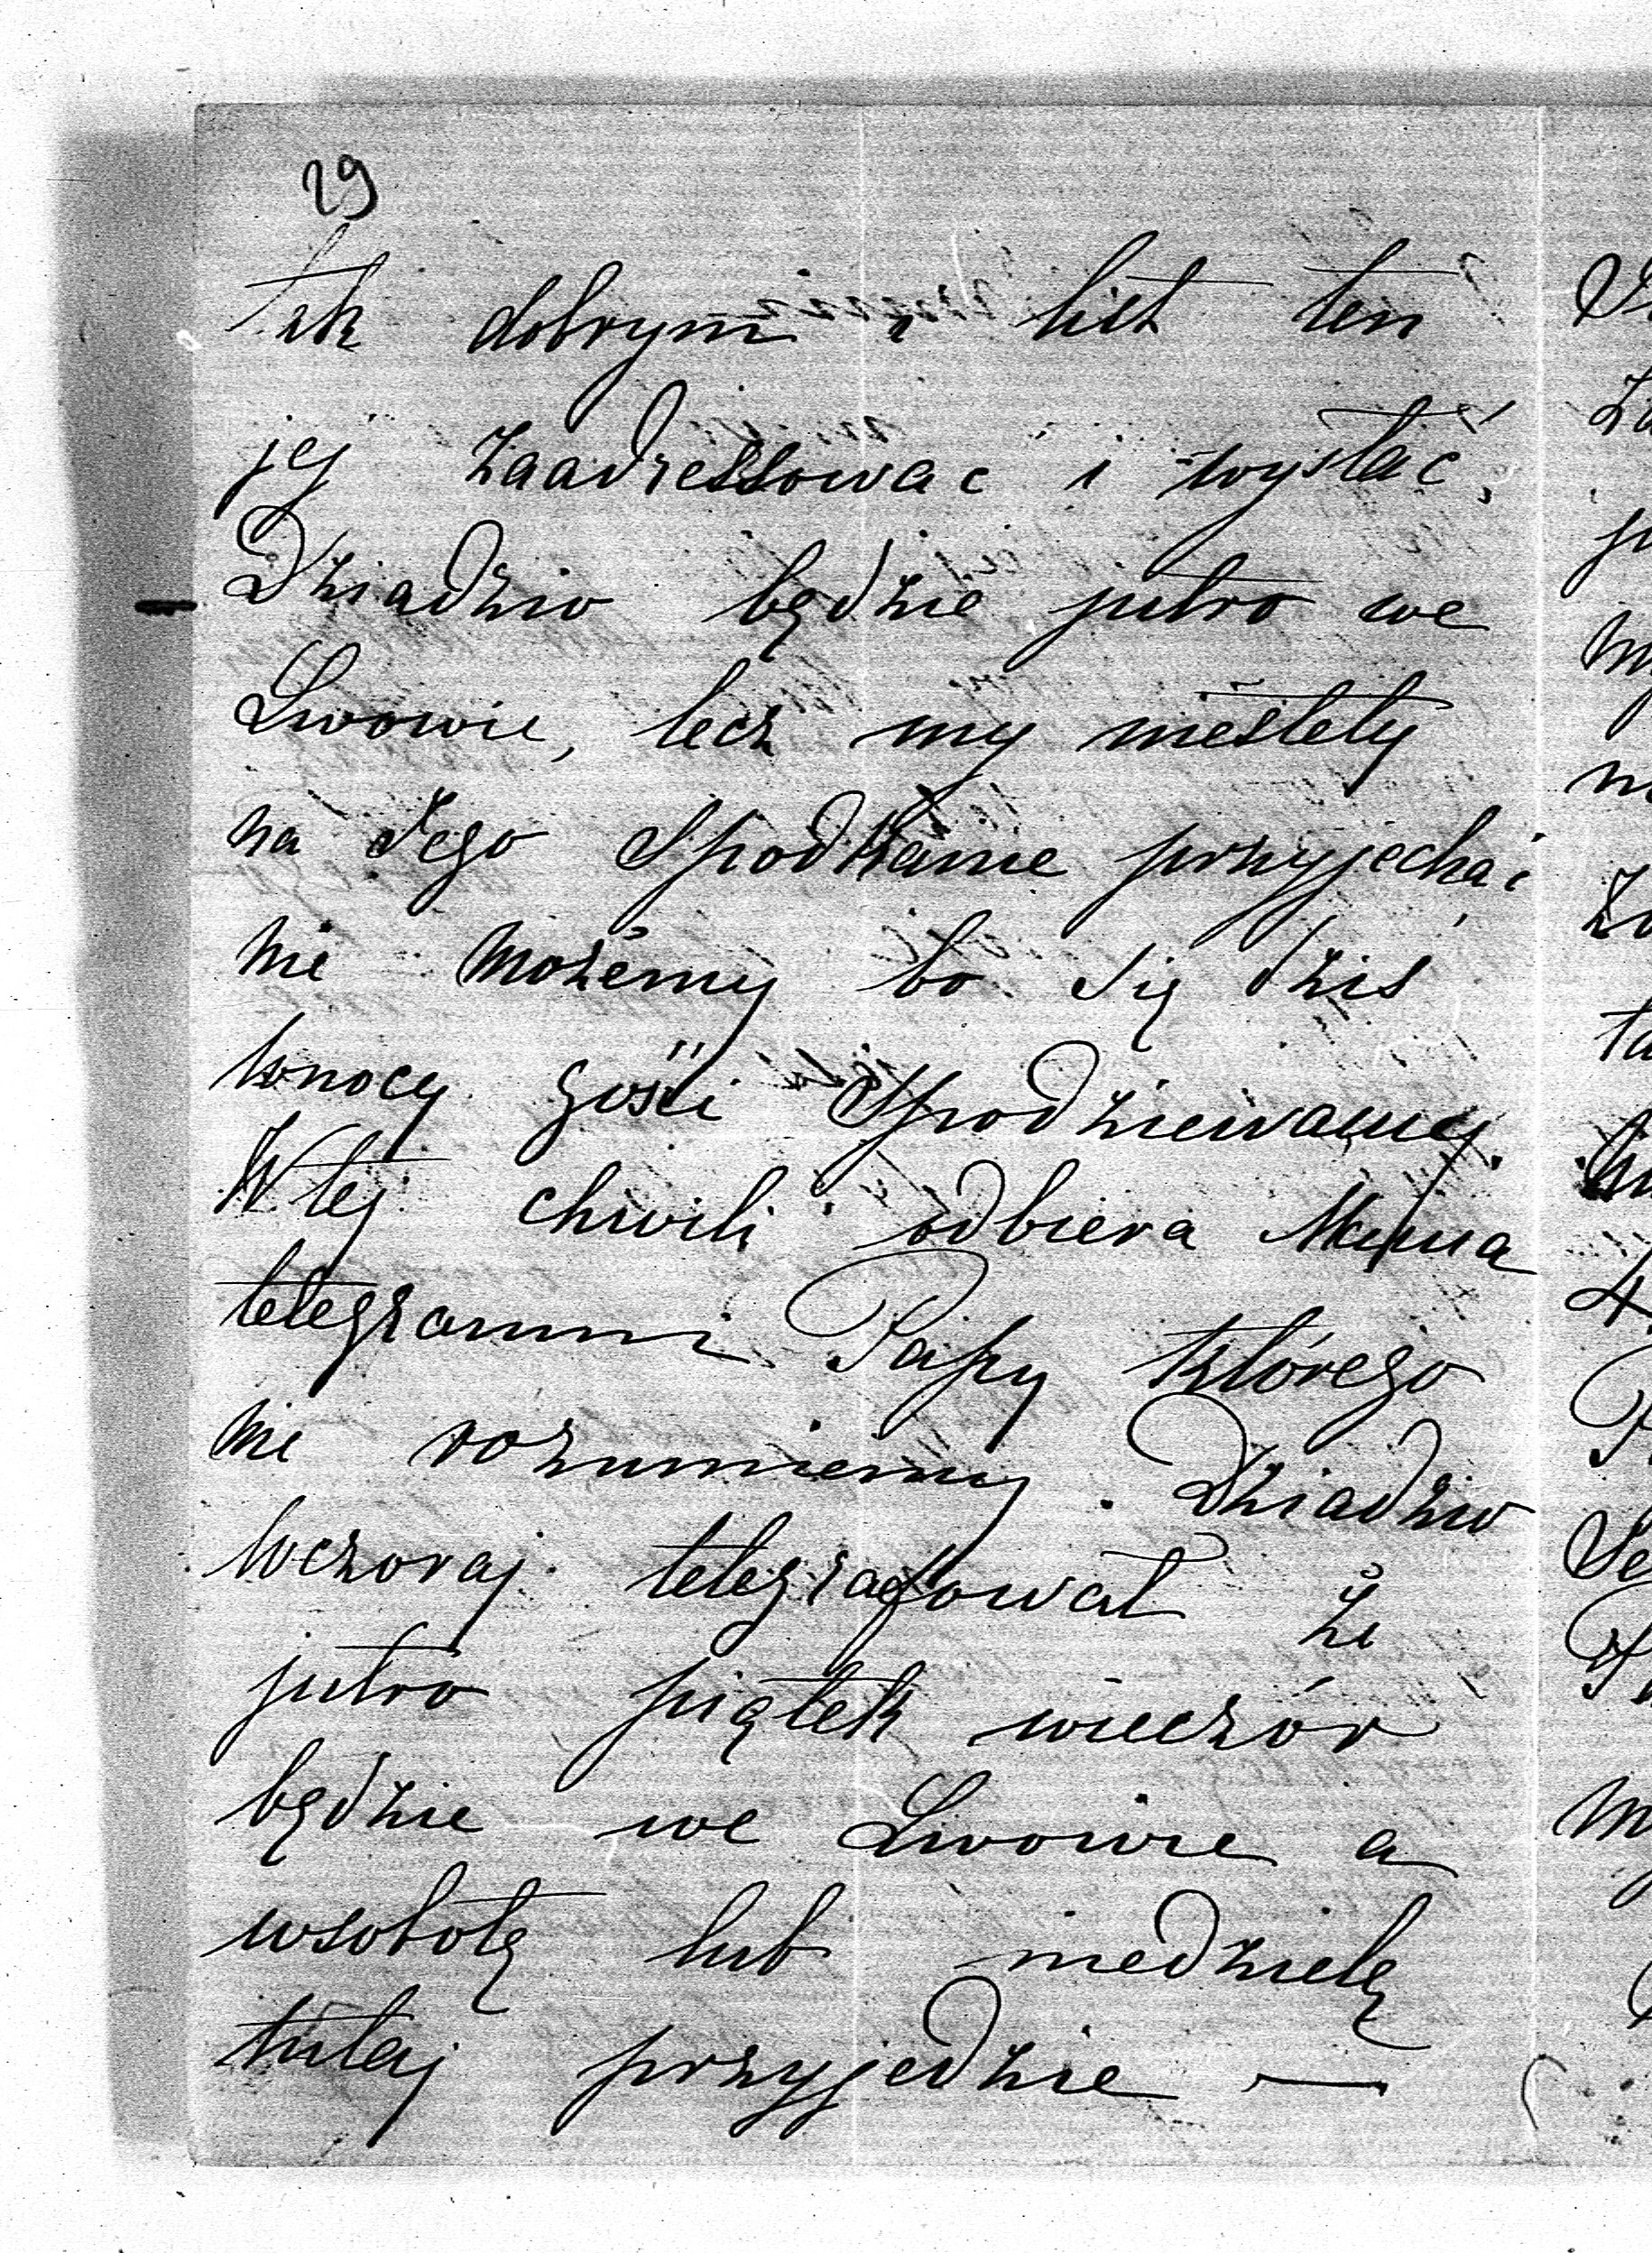 29
tak dobrym i list ten
jej zaadressować i wysłać,
Dziadzio będzie jutro we
Lwowie, lecz my niestety
na Jego spodkanie przyjechać
nie możemy bo się dziś
wnocy gości spodziewamy.
W tej chwili odbiera Mama
telegramm Papy którego
nie rozumiemy. Dziadzio
wczoraj telegrafował że
jutro piątek wieczór
będzie we Lwowie a
wsobotę lub niedzielę
tutaj przyjedzie —